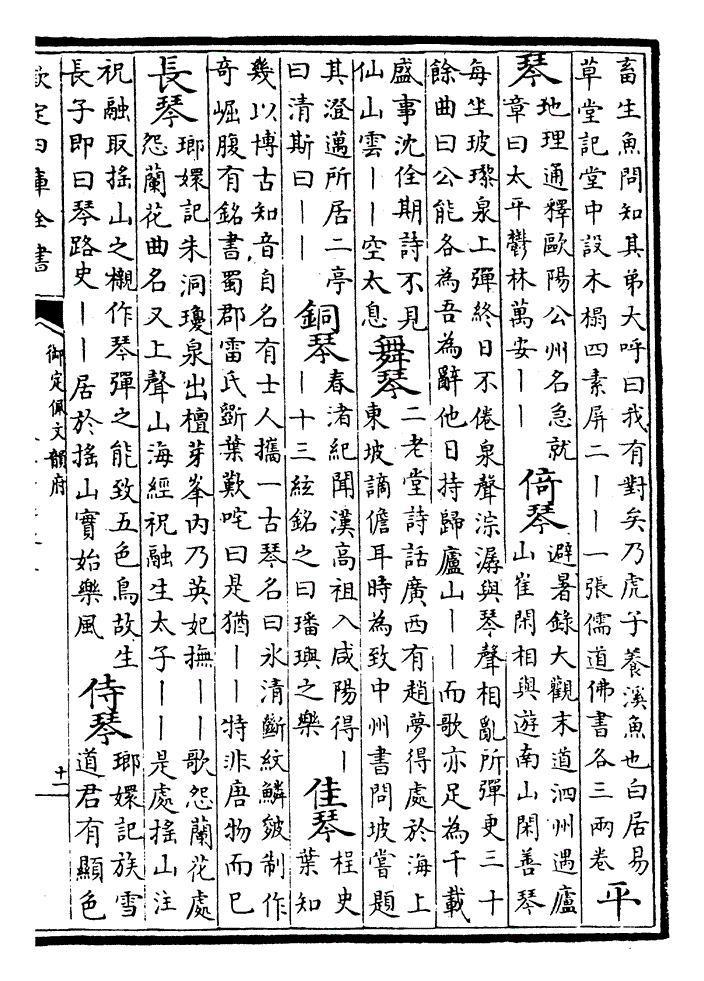 畜生魚問知其弟大呼曰我有對矣乃虎子養溪魚也白居易
草堂記堂中設木榻四素屏二丨丨一張儒道佛書各三兩卷
平
琴
地理通釋歐陽公州名急就
章曰太平鬱林萬安丨丨
倚琴
避暑錄大觀末道泗州遇廬
山崔閑相與遊南山閑善琴
每坐玻瓈泉上彈終日不倦泉聲淙潺與琴聲相亂所彈更三十
餘曲曰公能各為吾為辭他日持歸廬山丨丨而歌亦足為千載
盛事沈佺期詩不見
仙山雲丨丨空太息
舞琴
二老堂詩話廣西有趙夢得處於海上
東坡謫儋耳時為致中州書問坡嘗題
其澄邁所居二亭
曰清斯曰丨丨
銅琴
春渚紀聞漢高祖入咸陽得丨
丨十三絃銘之曰璠璵之樂
佳琴
桯史
葉知
幾以博古知音自名有士人攜一古琴名曰氷清斷紋鱗皴制作
奇崛腹有銘書蜀郡雷氏斵葉歎咤曰是猶丨丨特非唐物而已
長琴
瑯嬛記朱洞瓊泉出檀芽峯內乃英妃撫丨丨歌怨蘭花處
怨蘭花曲名又上聲山海經祝融生太子丨丨是處搖山注
祝融取搖山之櫬作琴彈之能致五色鳥故生
長子即曰琴路史丨丨居於搖山實始樂風
侍琴
瑯嬛記族雪
道君有顯色
欽定四庫全書
御定佩文韻府
十二